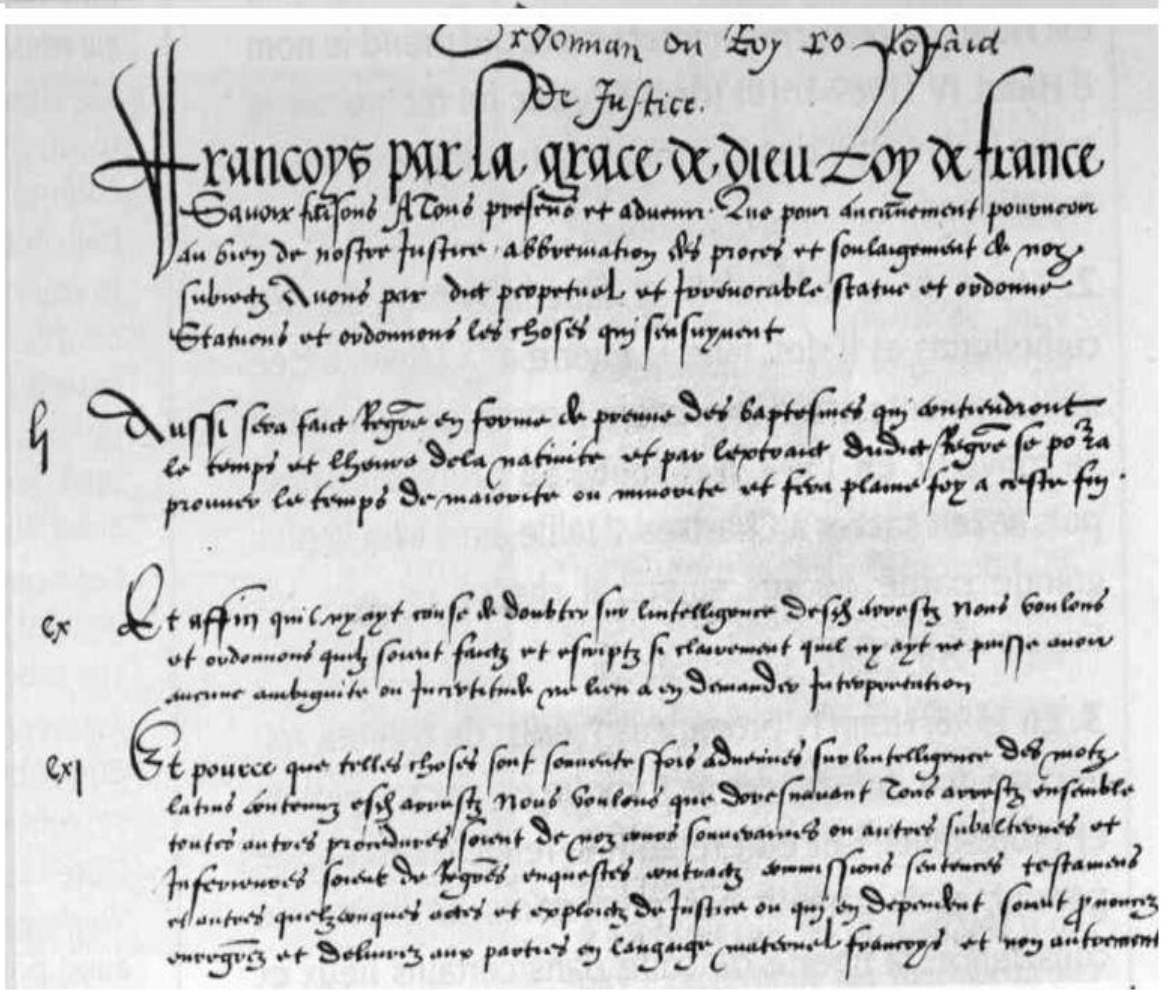 Ordonnan du Roy ro le faid
De Justice.
Francoys par la grace de dieu Roy de france
Savoir faisons A Tous presens et advenir. Que pour aucunement pourveoir
au bien de nostre Justice, abbreviation des proces et soulaigement de noz
subiectz Avons par edict perpetuel et Irrevocable statue et ordonne
Statuons et ordonnons les choses qui sensuyvent
li Aussi sera faict Regre en forme de preuve des baptesmes qui contiendront
le temps et lheure dela nativite et par lextraict dudict Regre se pora
prouver le temps de maiorite ou minorite et fera plaine foy a ceste fin.
cx Et affin quil ny ayt cause de doubter sur lintelligence desd arrestz Nous voulons
et ordonnons quilz soient faictz et escriptz si clairement quil ny ayt ne puisse avoir
aucune ambiguite ou Incertitude ne lieu a en demander Interpretation
cxi Et pource que telles choses sont souventesfois advenues sur lintelligence des motz
latins contenuz esd arrestz Nous voulons que doresnavant Tous arrestz ensemble
toutes autres procedures soient de noz cours souveraines ou autres subalternes et
Inferieures soient de Regres enquestes contractz commissions sentences testamens
et autres quelzconques actes et exploictz de Justice ou qui en dependent soient pnoncez
enregrez et delivrez aux parties en langaige maternel francoys et non autrement